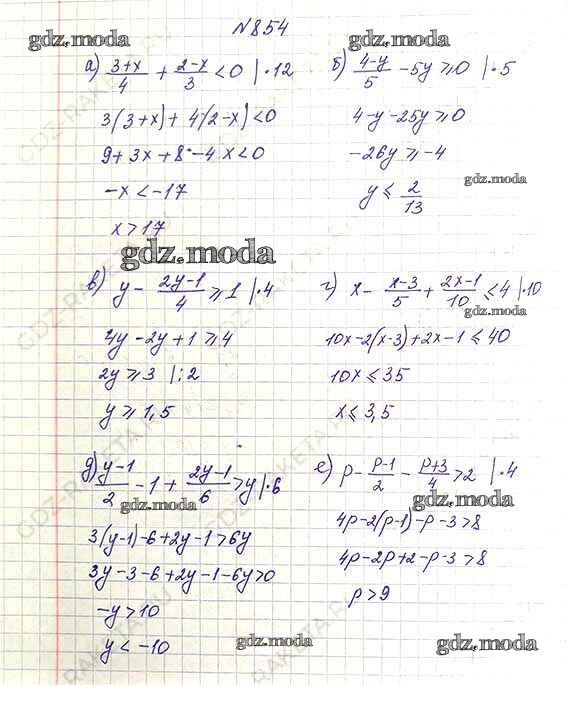 №854
gdz.moda
gdz.moda
а) (3+x)/4 + (2-x)/3 < 0 |·12
3(3+x) + 4(2-x) < 0
9 + 3x + 8 - 4x < 0
-x < -17
x > 17
б) (4-y)/5 - 5y ⩾ 0 |·5
4 - y - 25y ⩾ 0
-26y ⩾ -4
gdz.moda
y ⩽ 2/13
gdz.moda
в) y - (2y-1)/4 ⩾ 1 |·4
4y - 2y + 1 ⩾ 4
2y ⩾ 3 |:2
y ⩾ 1,5
г) x - (x-3)/5 + (2x-1)/10 ⩽ 4 |·10
gdz.moda
10x - 2(x-3) + 2x - 1 ⩽ 40
10x ⩽ 35
x ⩽ 3,5
д) (y-1)/2 - 1 + (2y-1)/6 > y |·6
gdz.moda
3(y-1) - 6 + 2y - 1 > 6y
3y - 3 - 6 + 2y - 1 - 6y > 0
-y > 10
y < -10
е) p - (p-1)/2 - (p+3)/4 > 2 |·4
gdz.moda
4p - 2(p-1) - p - 3 > 8
4p - 2p + 2 - p - 3 > 8
p > 9
gdz.moda
gdz.moda
GDZ-RAKETA.RU
GDZ-RAKETA.RU
GDZ-RAKETA.RU